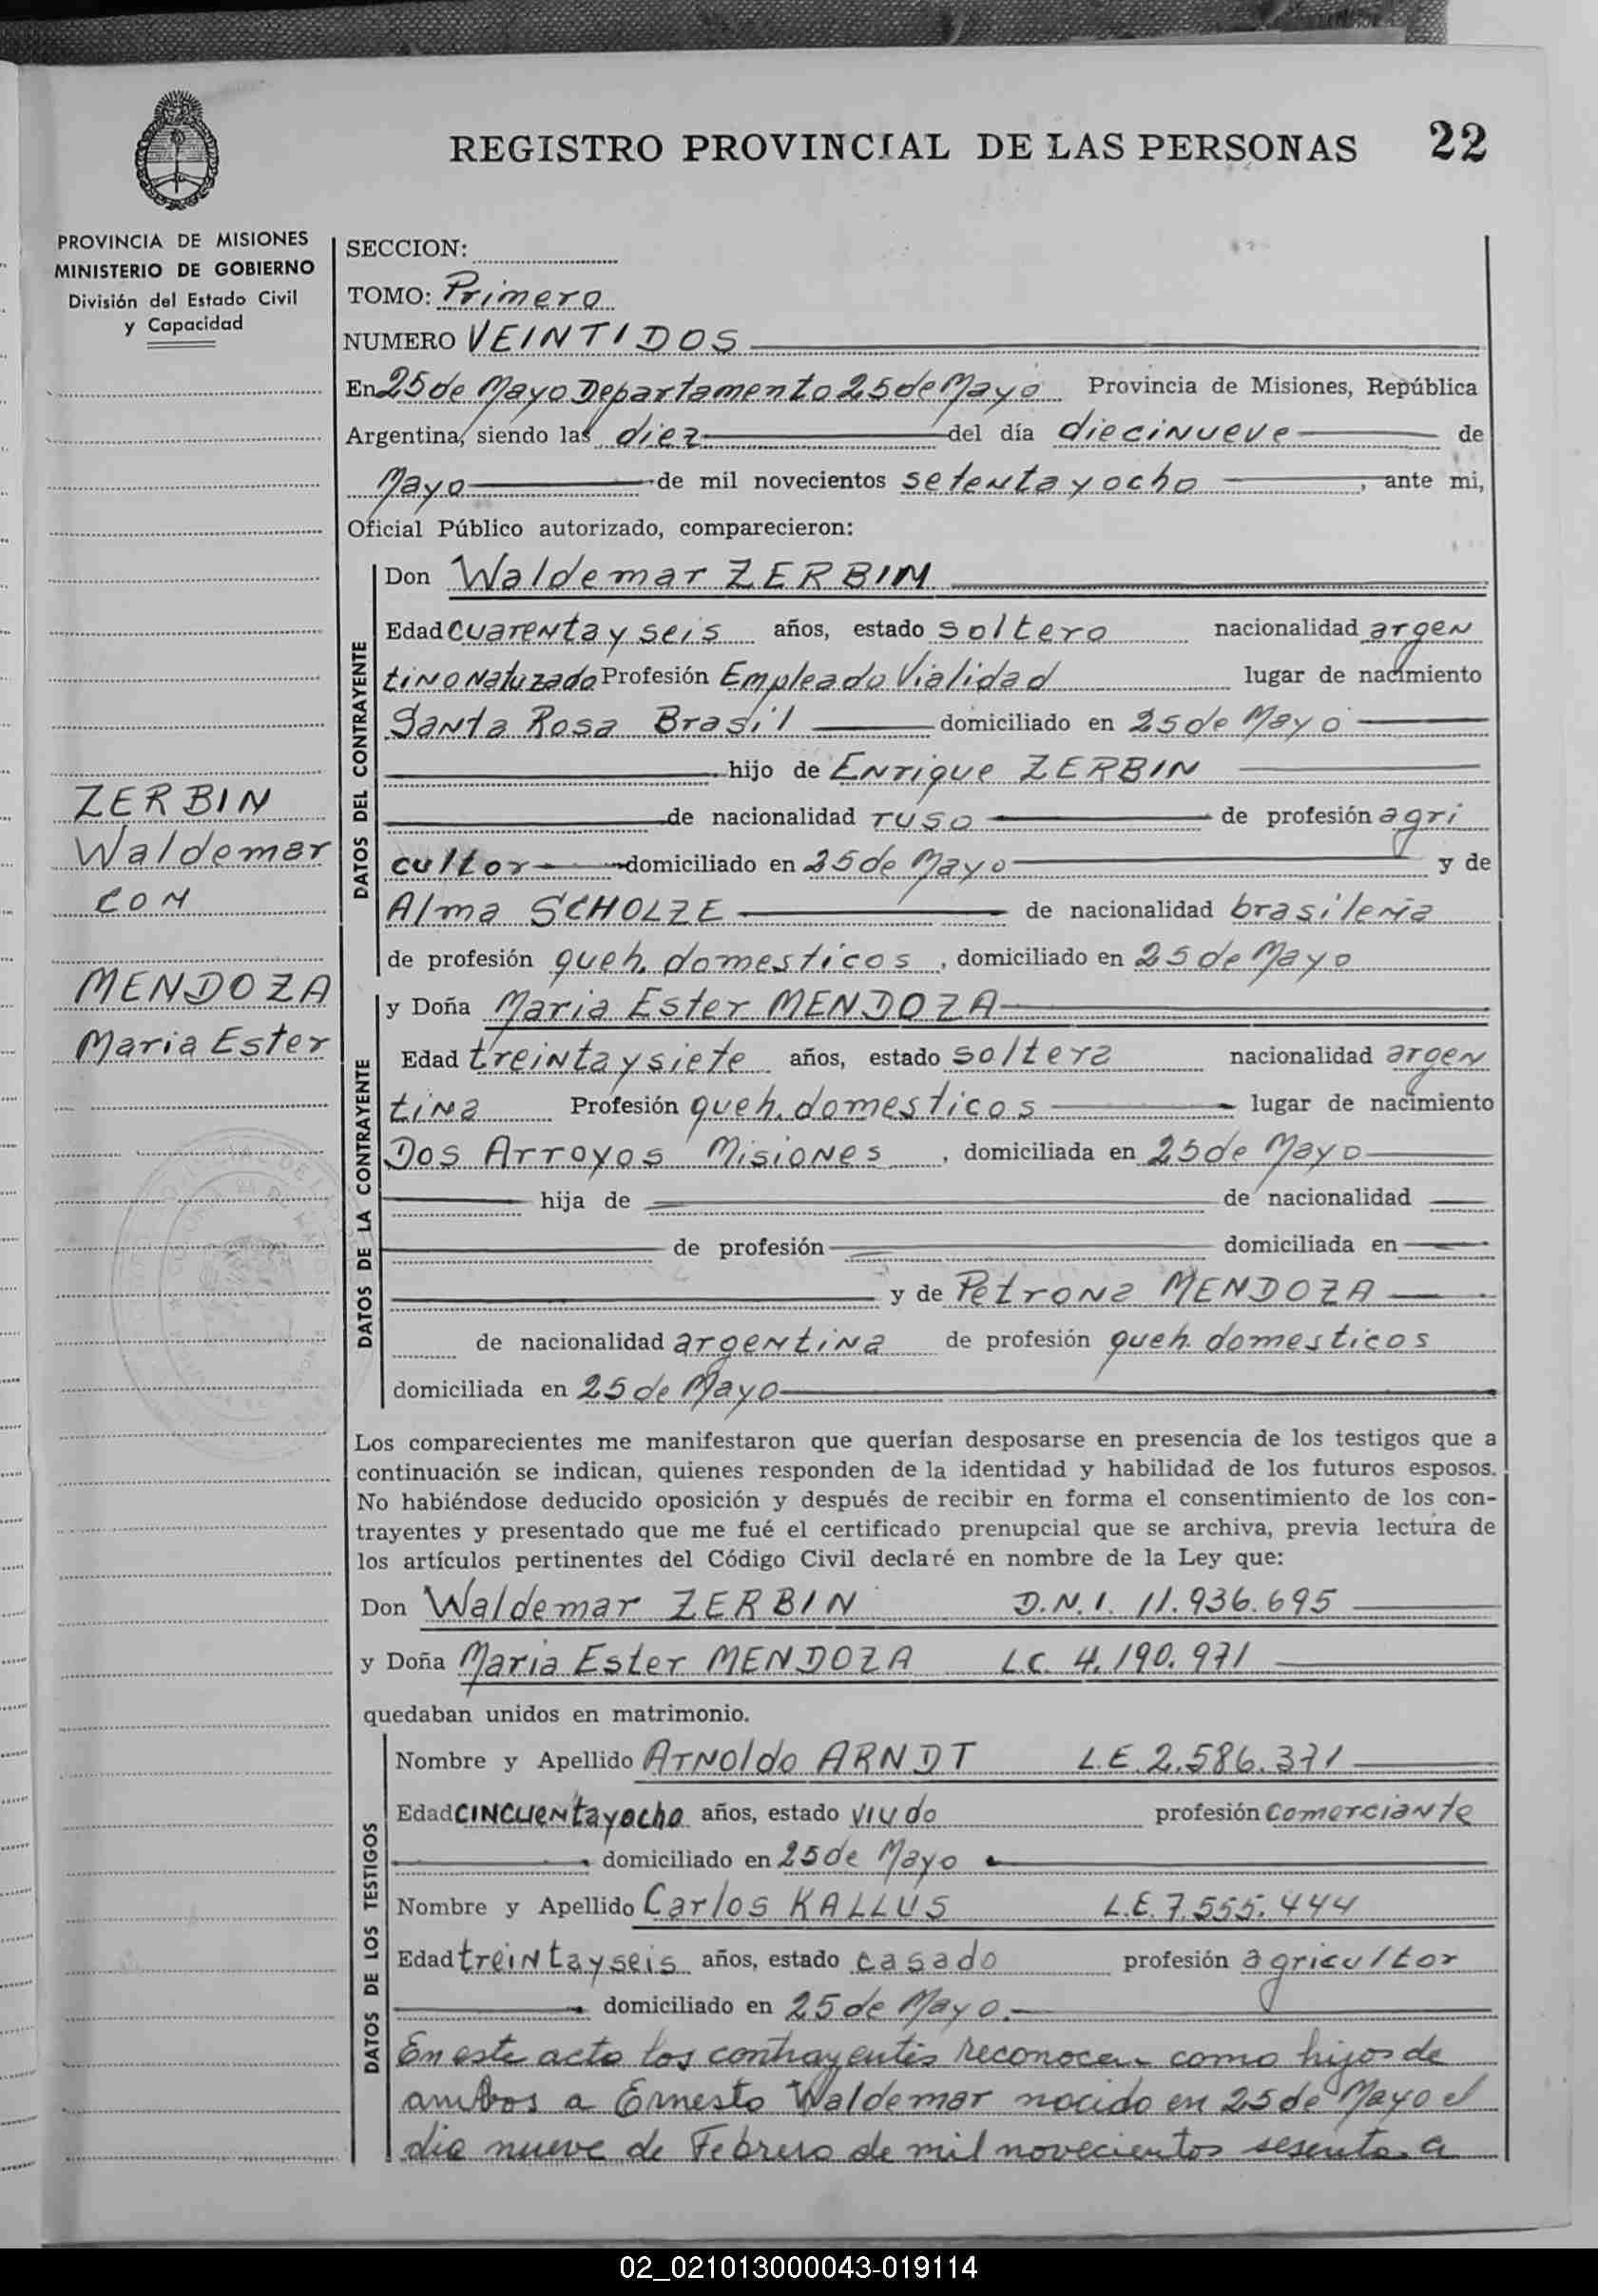 REGISTRO PROVINCIAL DE LAS PERSONAS 22
PROVINCIA DE MISIONES
MINISTERIO DE GOBIERNO
División del Estado Civil
y Capacidad
SECCION:
TOMO: Primero
NUMERO VEINTIDOS
En 25 de Mayo Departamento 25 de Mayo Provincia de Misiones, República
Argentina, siendo las diez del día diecinueve de
Mayo de mil novecientos setenta y ocho, ante mi,
Oficial Público autorizado, comparecieron:
DATOS DEL CONTRAYENTE
Don Waldemar ZERBIN
Edad cuarenta y seis años, estado soltero nacionalidad argen
tino Natuzado Profesión Empleado Vialidad lugar de nacimiento
Santa Rosa Brasil domiciliado en 25 de Mayo
hijo de Enrique ZERBIN
de nacionalidad ruso de profesión agri
cultor domiciliado en 25 de Mayo y de
Alma SCHOLZE de nacionalidad brasileña
de profesión queh. domesticos, domiciliado en 25 de Mayo
ZERBIN
Waldemar
CON
MENDOZA
Maria Ester
DATOS DE LA CONTRAYENTE
y Doña Maria Ester MENDOZA
Edad treinta y siete años, estado soltera nacionalidad argen
tina Profesión queh. domesticos lugar de nacimiento
Dos Arroyos Misiones, domiciliada en 25 de Mayo
hija de de nacionalidad
de profesión domiciliada en
y de Petrona MENDOZA
de nacionalidad argentina de profesión queh. domesticos
domiciliada en 25 de Mayo
Los comparecientes me manifestaron que querían desposarse en presencia de los testigos que a
continuación se indican, quienes responden de la identidad y habilidad de los futuros esposos.
No habiéndose deducido oposición y después de recibir en forma el consentimiento de los con-
trayentes y presentado que me fué el certificado prenupcial que se archiva, previa lectura de
los artículos pertinentes del Código Civil declaré en nombre de la Ley que:
Don Waldemar ZERBIN D.N.I. 11.936.695
y Doña Maria Ester MENDOZA L.C. 4.190.971
quedaban unidos en matrimonio.
DATOS DE LOS TESTIGOS
Nombre y Apellido Arnoldo ARNDT L.E. 2.586.371
Edad CINCUENTA y ocho años, estado viudo profesión comerciante
domiciliado en 25 de Mayo
Nombre y Apellido Carlos KALLUS L.E. 7.555.444
Edad treinta y seis años, estado casado profesión agricultor
domiciliado en 25 de Mayo.
En este acto los contrayentes reconocen como hijos de
ambos a Ernesto Waldemar nacido en 25 de Mayo el
dia nueve de Febrero de mil novecientos sesenta a
02_021013000043-019114